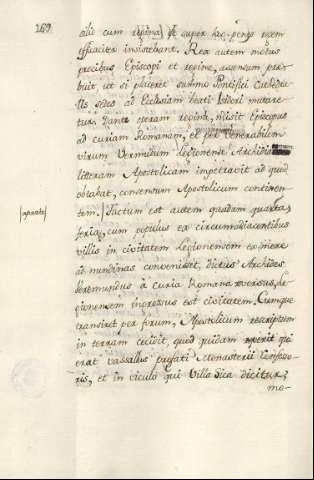 269
aliis cum regina, et super hoc penes regem
efficaciter insistebant. Rex autem motus
precibus Episcopi et regine, assensum præ-
buit, ut si placeret summo Pontifici Cathedra-
lis sedes ad Ecclesiam beati Isidori mutare-
tur. Dante operam regina, misit Episcopus
ad curiam Romanam, et per venerabilem
virum Vermudum legionense Archidia
litteram Apostolicam impetravit ad quod
optabat, consensum Apostolicum continen-
tem. Factum est autem quadam quarta
feria, cum populus ex circumadiacentibus
villis in civitatem legionensem ex more
ad nundinas convenisset, dictus Archides
Veremundus à curia Romana reversus, le-
gionensem ingressus est civitatem. Cumque
transiret per forum, Apostolicum rescriptum
in terram cecidit, quod quidam reperit qui
erat vassallus prefati Monasterii Confesso-
ris, et in viculo qui Villa Sica dicitur,
mo-